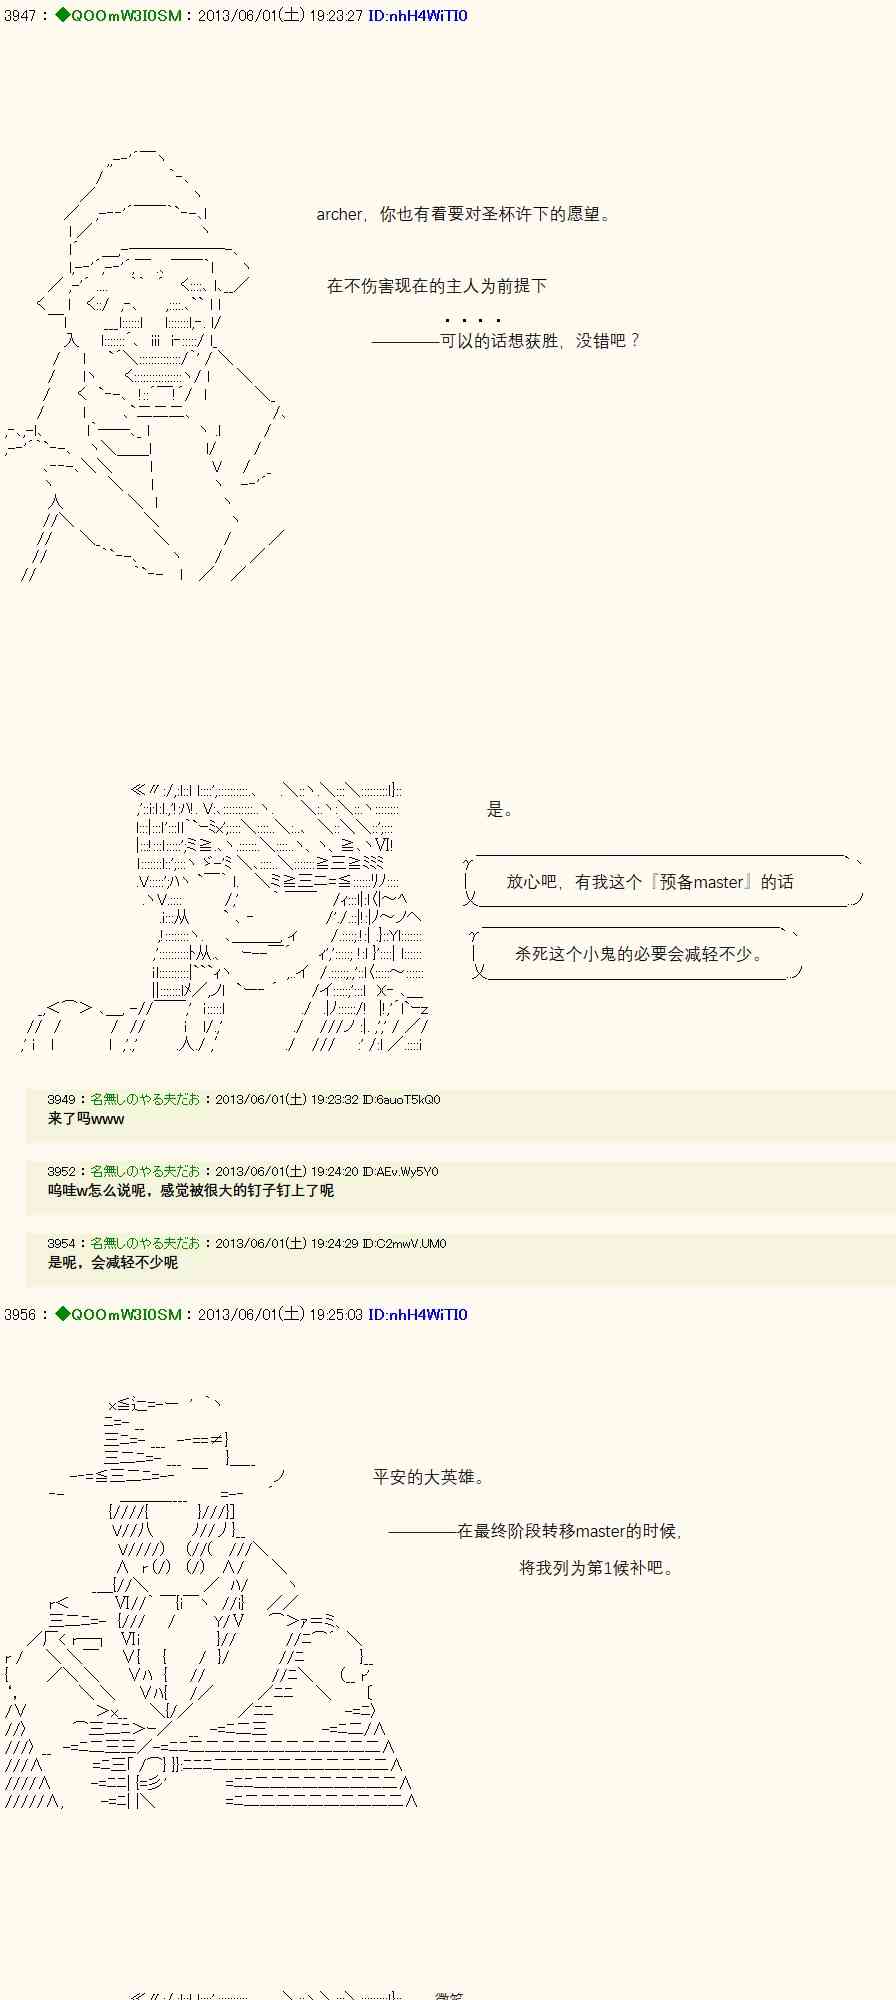 3947 : ◆QOOmW3I0SM : 2013/06/01(土) 19:23:27 ID:nhH4WiTI0
archer，你也有着要对圣杯许下的愿望。
在不伤害现在的主人为前提下
————可以的话想获胜，没错吧？
是。
放心吧，有我这个『预备master』的话
杀死这个小鬼的必要会减轻不少。
3949 : 名無しのやる夫だお : 2013/06/01(土) 19:23:32 ID:6auoT5kQ0
来了吗www
3952 : 名無しのやる夫だお : 2013/06/01(土) 19:24:20 ID:AEv.Wy5Y0
呜哇w怎么说呢，感觉被很大的钉子钉上了呢
3954 : 名無しのやる夫だお : 2013/06/01(土) 19:24:29 ID:C2mwV.UM0
是呢，会减轻不少呢
3956 : ◆QOOmW3I0SM : 2013/06/01(土) 19:25:03 ID:nhH4WiTI0
平安的大英雄。
————在最终阶段转移master的时候，
将我列为第1候补吧。